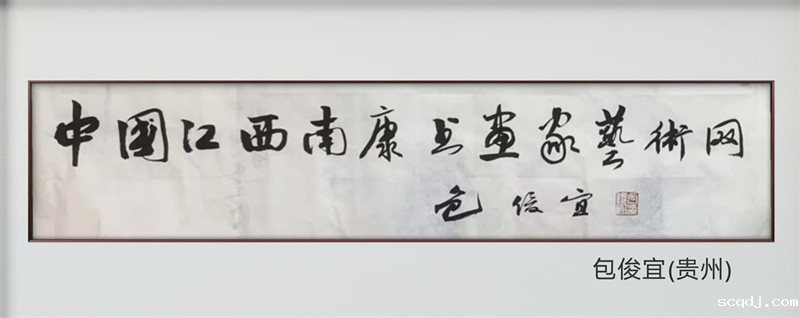 中國江西南康书畫家藝術网
包俊宜
包俊宜(贵州)
scqdj.com